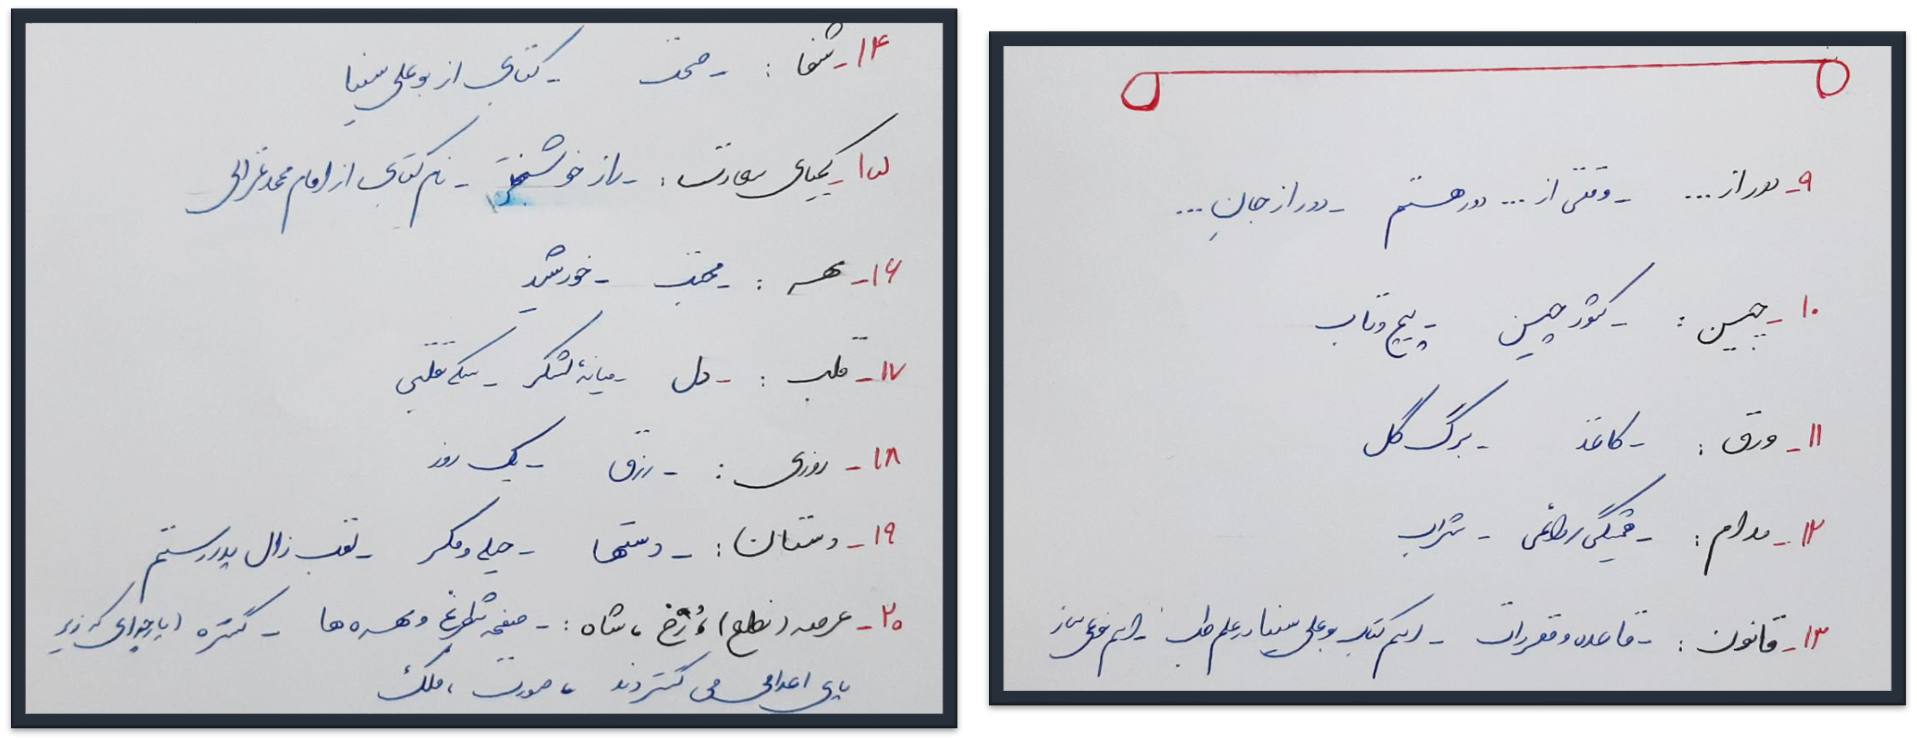 ۹- دور از ... - وقتی از ... دور هستم - دور از جانِ ...
۱۰- چین : - کشور چین - پیچ و تاب
۱۱- ورق : - کاغذ - برگ گل
۱۲- مدام : - همیشگی / دائمی - شراب
۱۳- قانون : - قاعده و مقررات - اسم کتاب بوعلی سینا در علم طب - اسم نوعی ساز
۱۴- شفا : - صحت - کتابی از بوعلی سینا
۱۵- کیمیای سعادت : - راز خوشبختی - نام کتابی از امام محمد غزالی
۱۶- مهر : - محبت - خورشید
۱۷- قلب : - دل - میانهٔ لشکر - سکه تقلبی
۱۸- روزی : - رزق - یک روز
۱۹- دستان : - دستها - حیله و مکر - لقب زال پدر رستم
۲۰- عرصه (نطع) ، رُخ ، شاه : - صفحه شطرنج و مهره ها - گستره (پارچه‌ای که زیر
پای اعدامی می گستردند ، صورت ، ملک